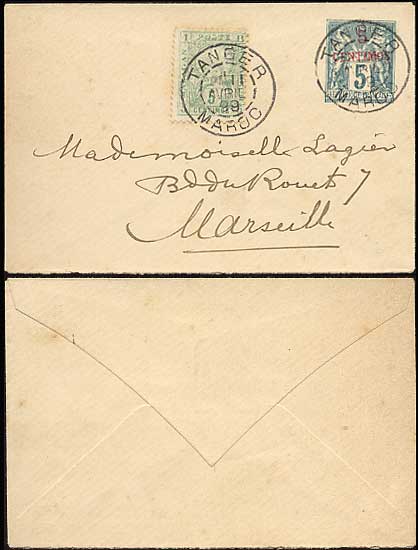 POSTE
5
TANGER
AVRIL
99
MAROC
5
CENTIMOS
5
TANGER
MAROC
Mademoiselle Lagier
Bd du Rouet 7
Marseille